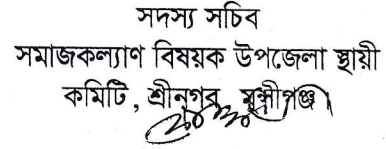 সদস্য সচিব
সমাজকল্যাণ বিষয়ক উপজেলা স্থায়ী
কমিটি, শ্রীনগর, মুন্সীগঞ্জ।